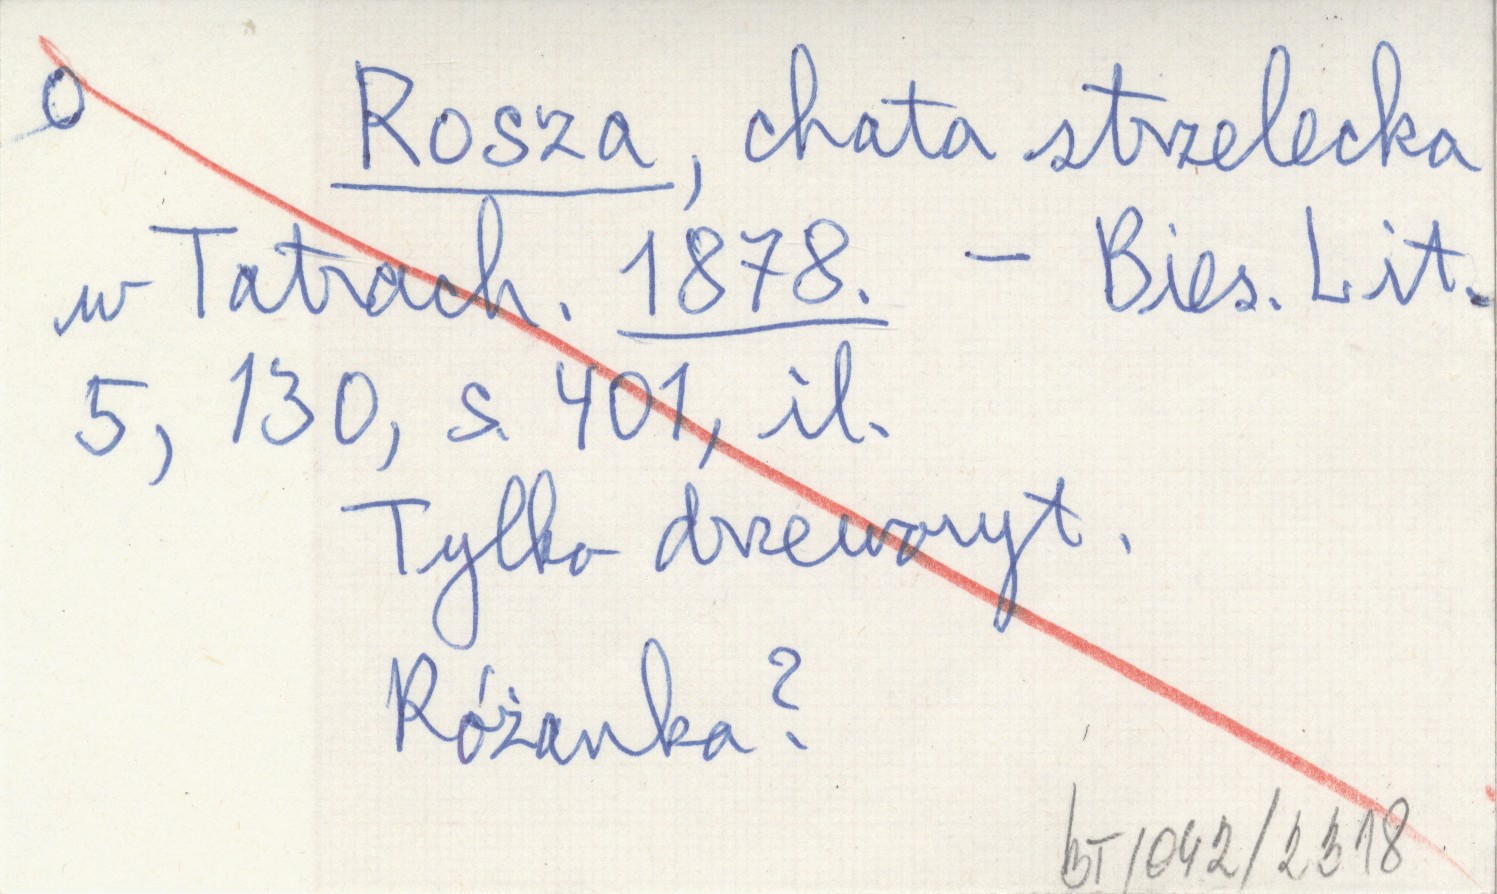 O
Rosza, chata strzelecka
w Tatrach. 1878. - Bies. Lit.
5, 130, s. 401, il.
Tylko drzeworyt.
Różanka?
BT/042/2318